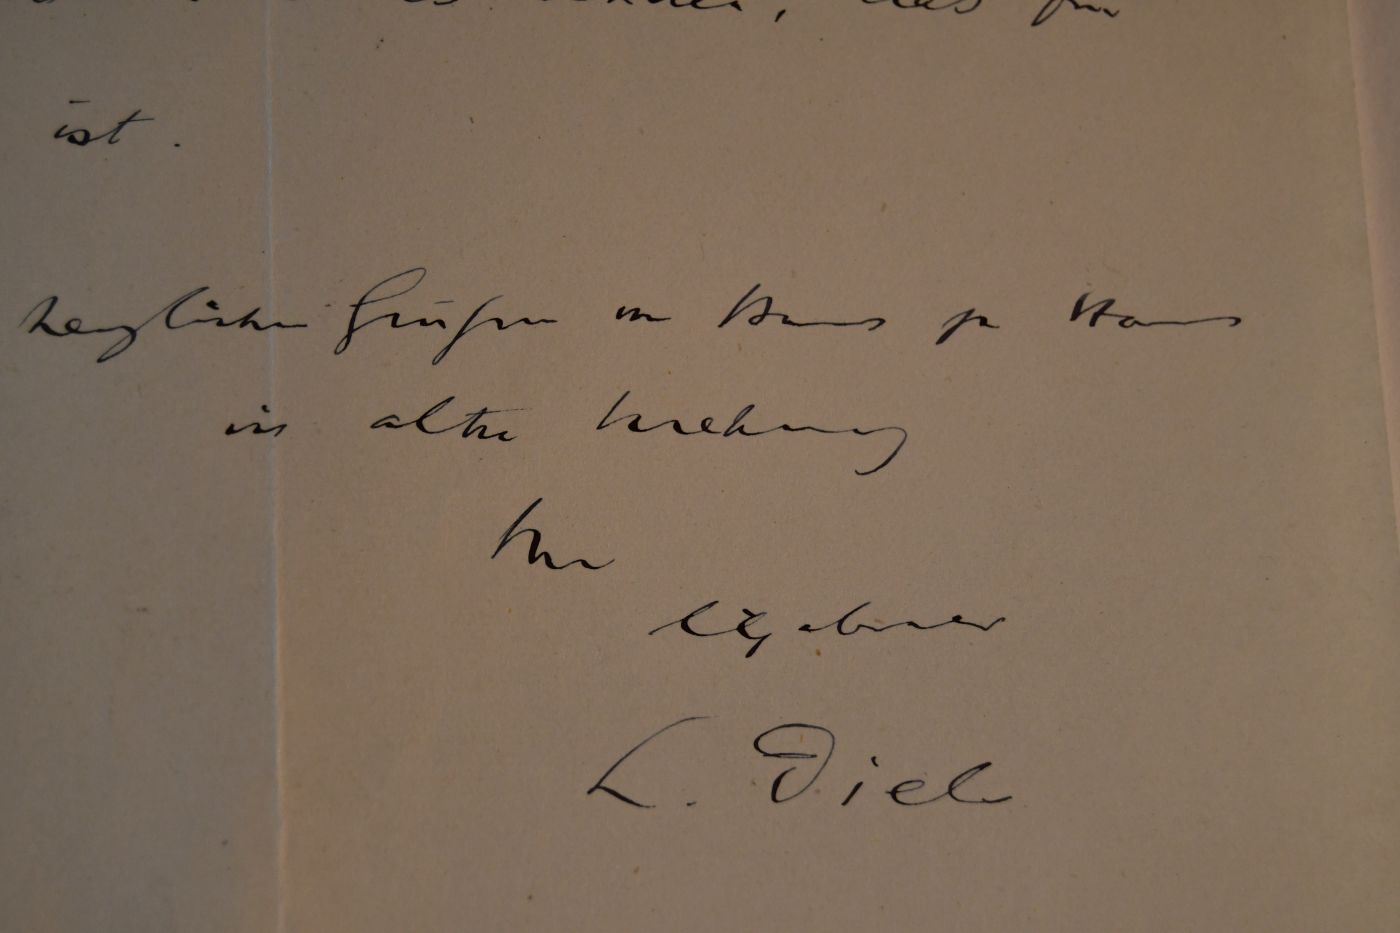 ist.
herzlichen Grüßen von Haus zu Haus
in alter Verehrung
Ihr
ergebener
L. Diel